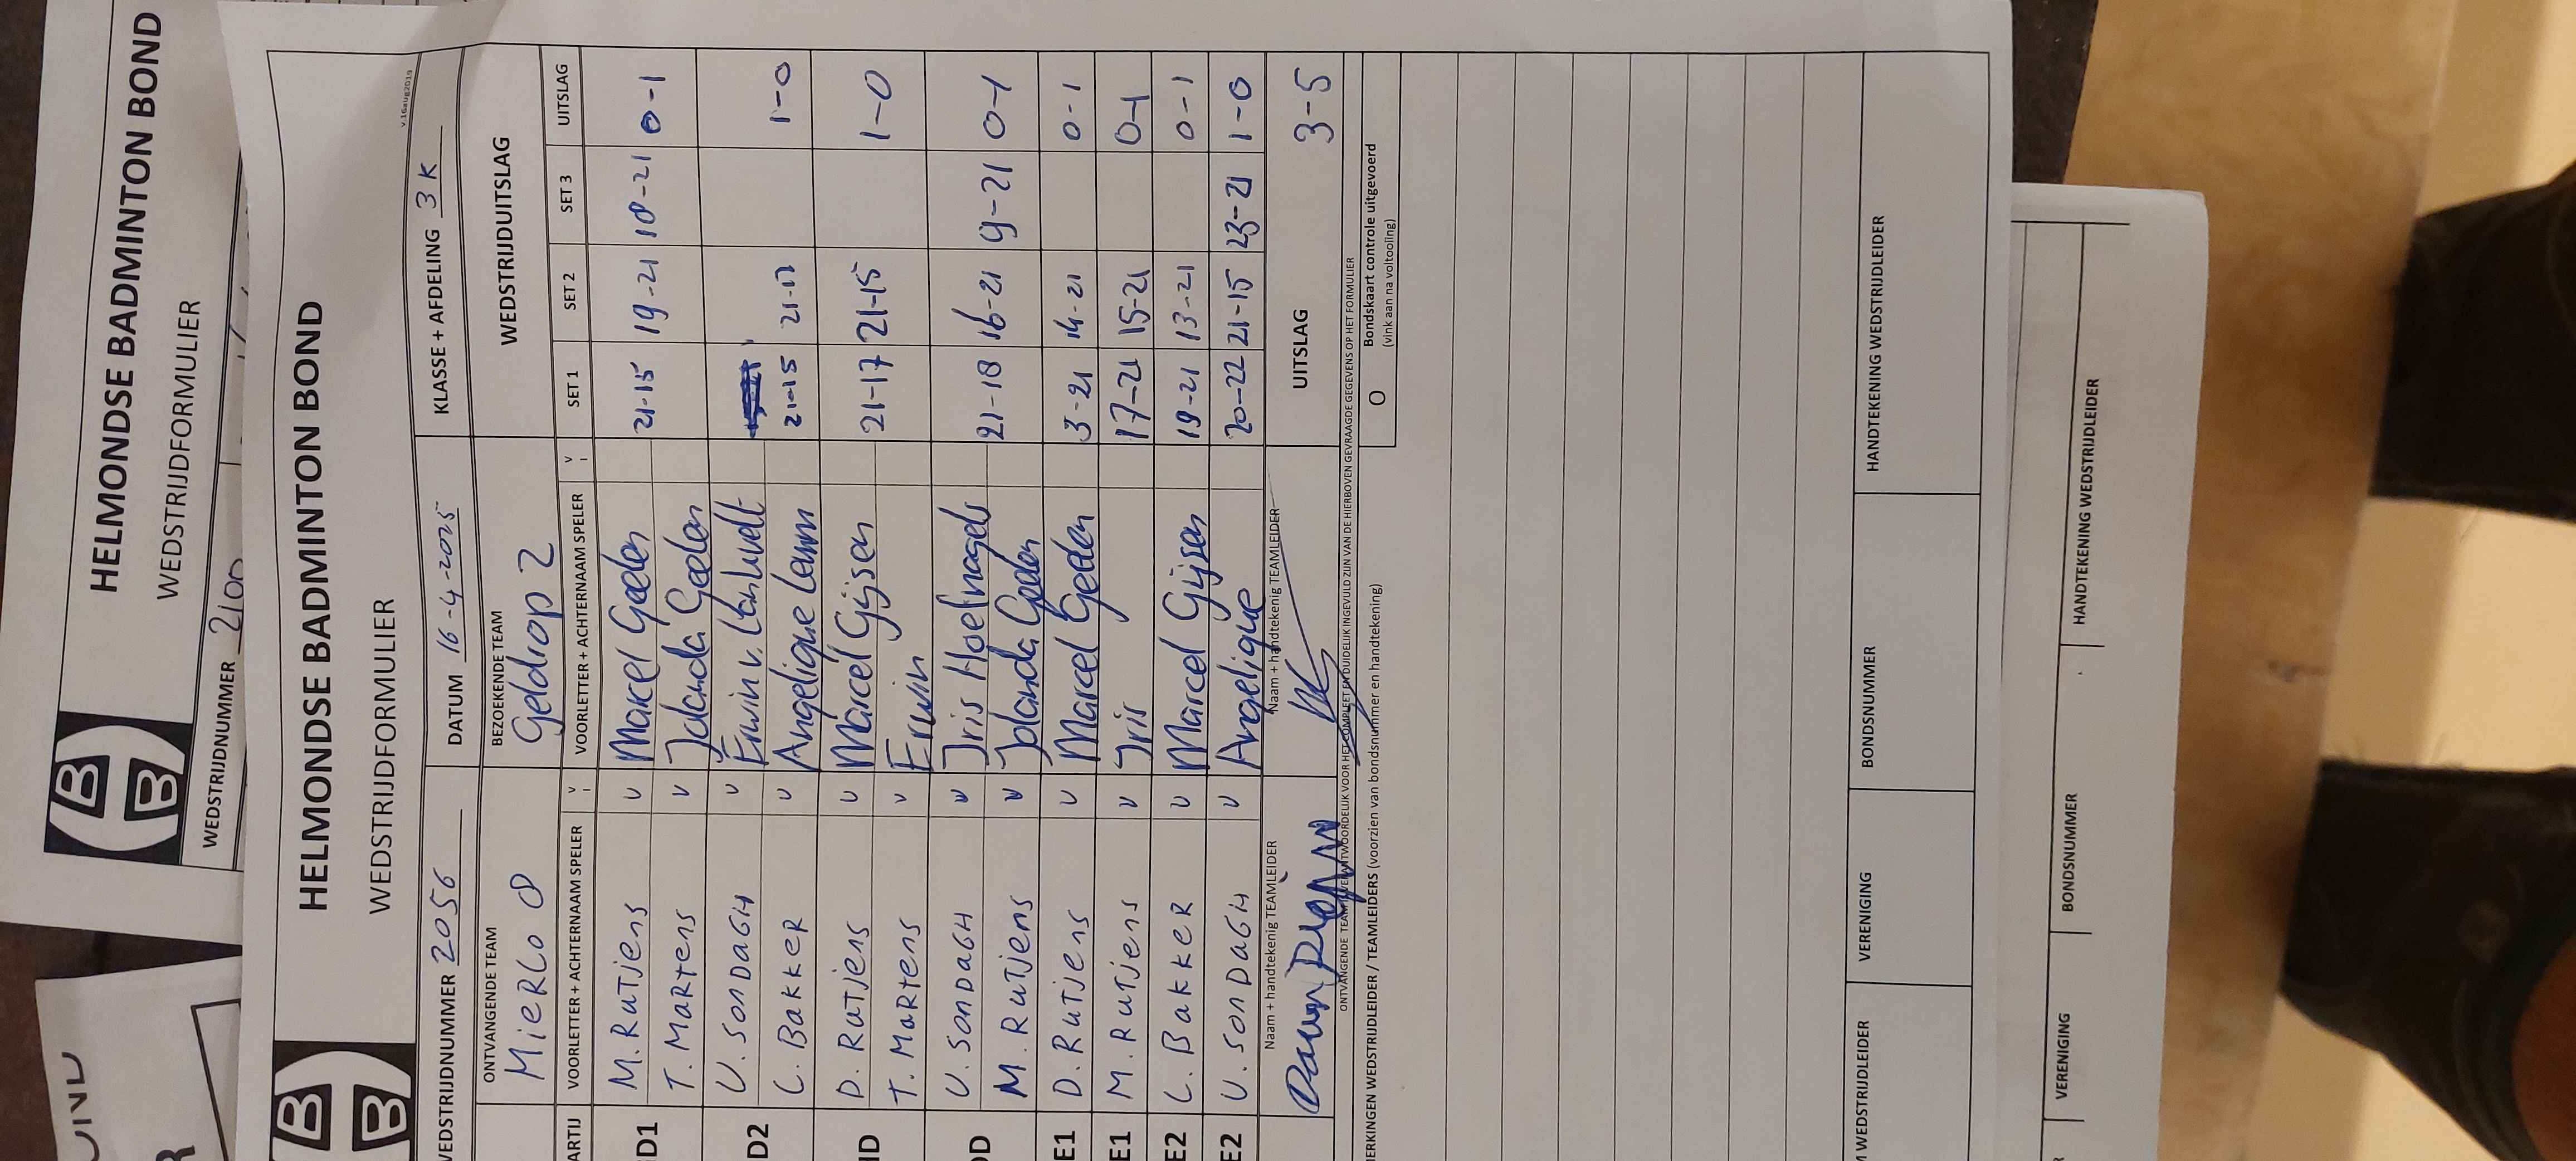 HELMONDSE BADMINTON BOND
WEDSTRIJDFORMULIER
WEDSTRIJDNUMMER 2100
HELMONDSE BADMINTON BOND
WEDSTRIJDFORMULIER
v.16aug2019
WEDSTRIJDNUMMER 2056 DATUM 16-4-2025 KLASSE + AFDELING 3K
ONTVANGENDE TEAM BEZOEKENDE TEAM WEDSTRIJDUITSLAG
MIERLO 8 Geldrop 2
ARTIJ VOORLETTER + ACHTERNAAM SPELER V VOORLETTER + ACHTERNAAM SPELER V SET 1 SET 2 SET 3 UITSLAG
D1 M. Rutjens v Marcel Geelen 21-15 19-21 18-21 0-1
T. Martens v Jolanda Geelen
D2 U. Sondagh v Erwin v.
C. Bakker v Angelique 21-15 21-17 1-0
D D. Rutjens v Marcel Gijsen 21-17 21-15 1-0
T. Martens v Erwin
D U. Sondagh v Iris Hoefnagels 21-18 16-21 9-21 0-1
M. Rutjens v Jolanda Geelen
E1 D. Rutjens v Marcel Geelen 3-21 14-21 0-1
E1 M. Rutjens v Iris 17-21 15-21 0-1
E2 C. Bakker v Marcel Gijsen 19-21 13-21 0-1
E2 U. Sondagh v Angelique 20-22 21-15 23-21 1-0
Naam + handtekenig TEAMLEIDER Naam + handtekenig TEAMLEIDER UITSLAG 3-5
ONTVANGENDE TEAM IS VERANTWOORDELIJK VOOR HET COMPLEET EN DUIDELIJK INGEVULD ZIJN VAN DE HIERBOVEN GEVRAAGDE GEGEVENS OP HET FORMULIER
ERKINGEN WEDSTRIJDLEIDER / TEAMLEIDERS (voorzien van bondsnummer en handtekening) O Bondskaart controle uitgevoerd
(vink aan na voltooiing)
WEDSTRIJDLEIDER VERENIGING BONDSNUMMER HANDTEKENING WEDSTRIJDLEIDER
VERENIGING BONDSNUMMER HANDTEKENING WEDSTRIJDLEIDER